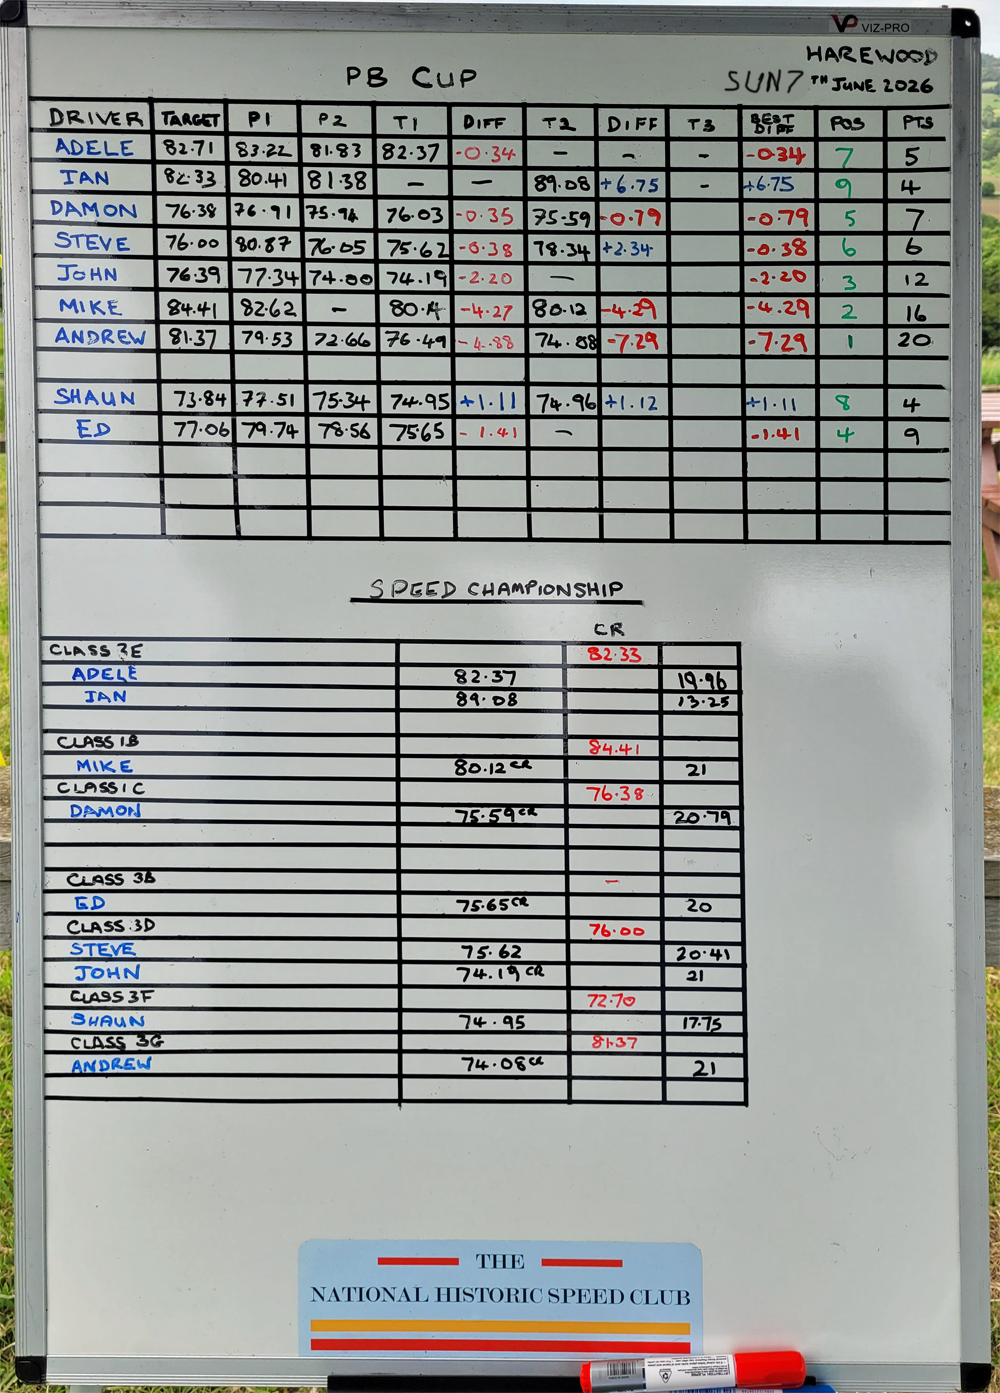 VP VIZ-PRO
HAREWOOD
PB CUP SUN 7TH JUNE 2026
DRIVER TARGET P1 P2 T1 DIFF T2 DIFF T3 BEST DIFF POS PTS
ADELE 82.71 83.22 81.83 82.37 -0.34 - - - -0.34 7 5
IAN 82.33 80.41 81.38 - - 89.08 +6.75 - +6.75 9 4
DAMON 76.38 76.91 75.94 76.03 -0.35 75.59 -0.79 -0.79 5 7
STEVE 76.00 80.87 76.05 75.62 -0.38 78.34 +2.34 -0.38 6 6
JOHN 76.39 77.34 74.00 74.19 -2.20 - -2.20 3 12
MIKE 84.41 82.62 - 80.14 -4.27 80.12 -4.29 -4.29 2 16
ANDREW 81.37 79.53 72.66 76.49 -4.88 74.08 -7.29 -7.29 1 20
SHAUN 73.84 77.51 75.34 74.95 +1.11 74.96 +1.12 +1.11 8 4
ED 77.06 79.74 78.56 75.65 -1.41 - -1.41 4 9
SPEED CHAMPIONSHIP
CR
CLASS 3E 82.33
ADELE 82.37 19.96
IAN 89.08 13.25
CLASS 1B 84.41
MIKE 80.12 CR 21
CLASS 1C 76.38
DAMON 75.59 CR 20.79
CLASS 3B -
ED 75.65 CR 20
CLASS 3D 76.00
STEVE 75.62 20.41
JOHN 74.19 CR 21
CLASS 3F 72.70
SHAUN 74.95 17.75
CLASS 3G 81.37
ANDREW 74.08 CR 21
THE
NATIONAL HISTORIC SPEED CLUB